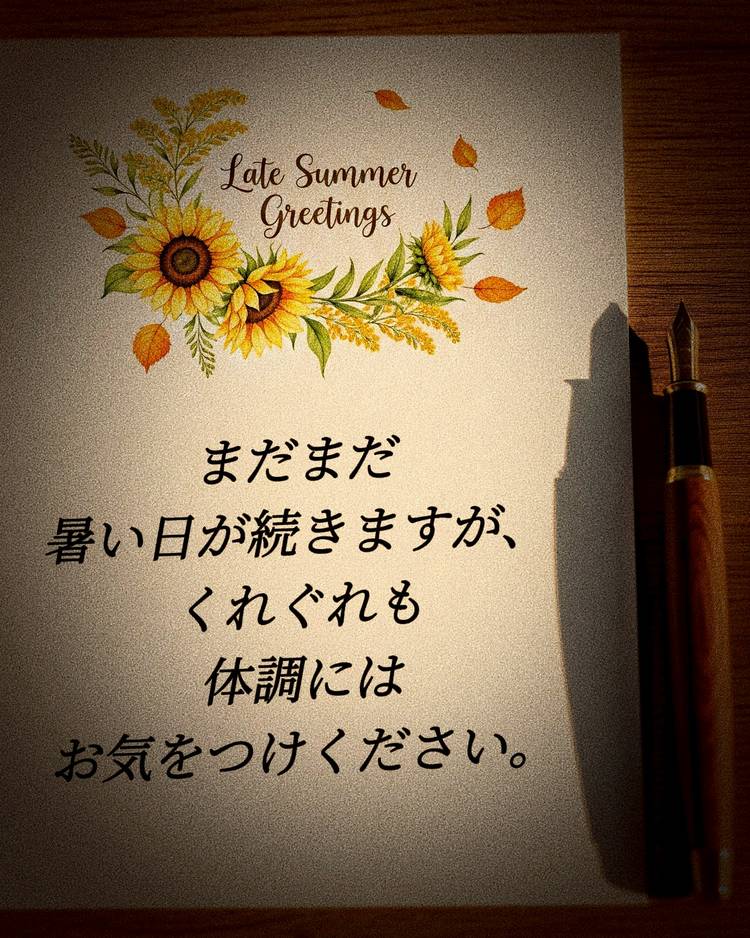 Late Summer
Greetings
まだまだ
暑い日が続きますが、
くれぐれも
体調には
お気をつけください。